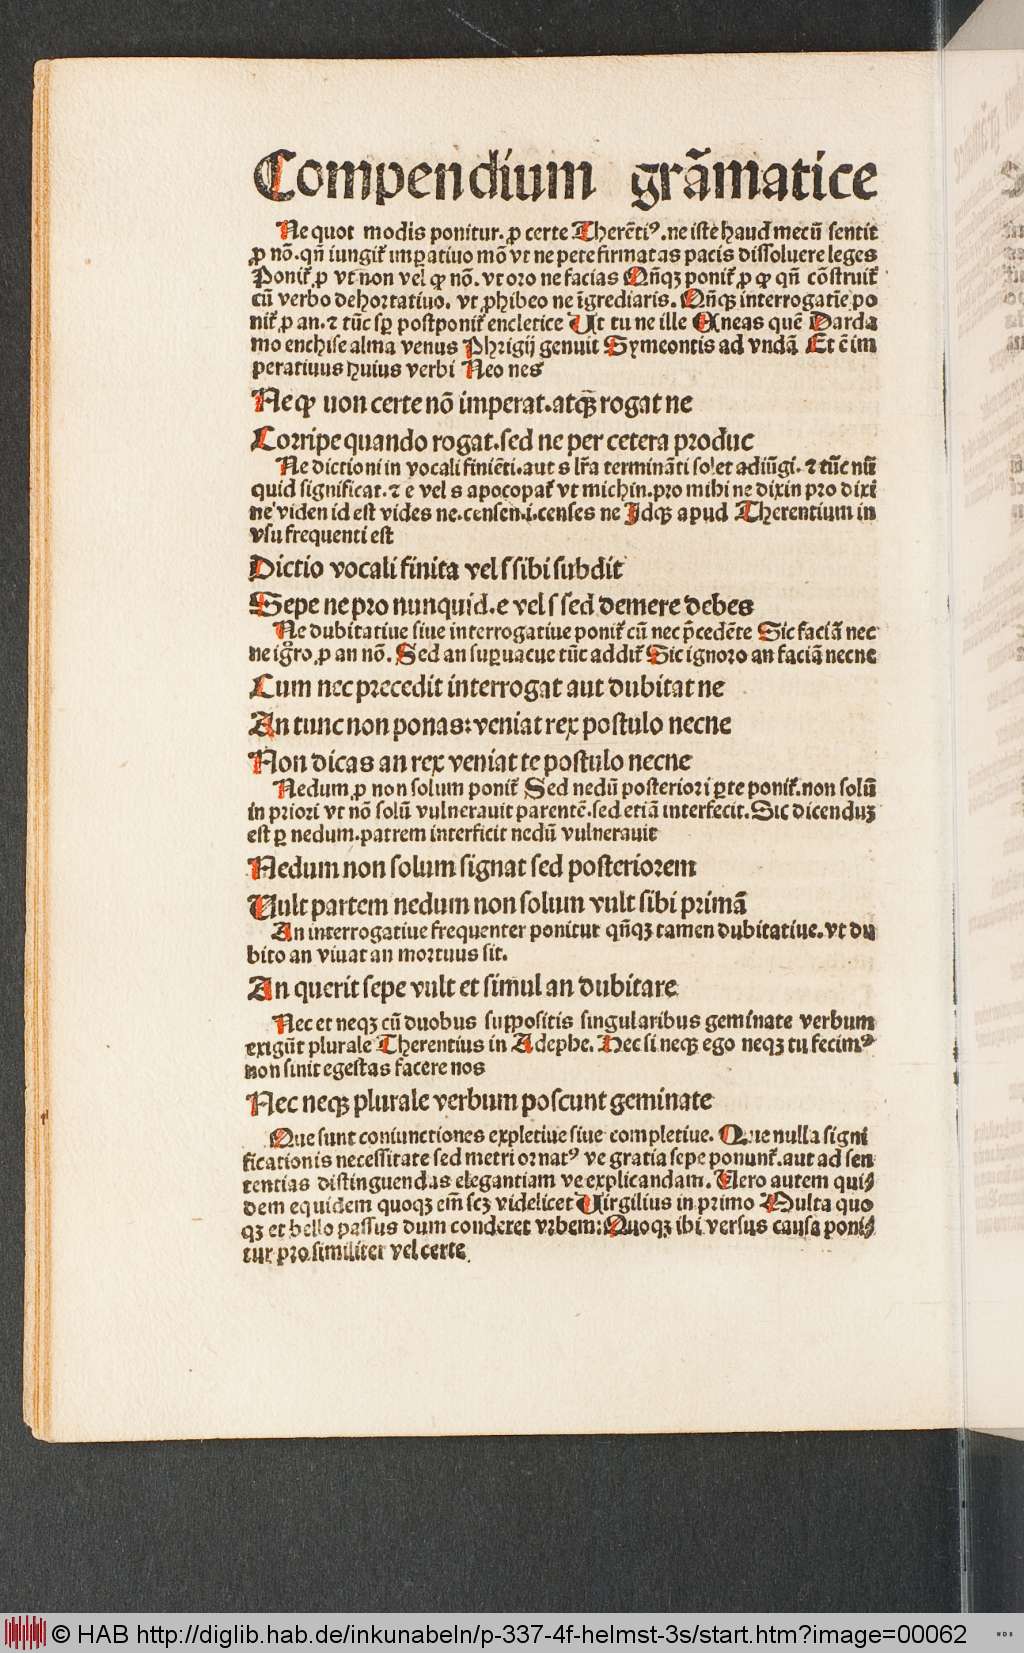 Compendium grãmatice
Ne quot modis ponitur. ꝓ certe Therẽtiꝰ. ne iste haud mecũ sentit
ꝓ nõ. qñ iungit᷑ imꝑatiuo mõ vt ne pete firmatas pacis dissoluere leges
Ponit᷑ ꝓ vt non vel ꝙ nõ. vt oro ne facias Qñqꝫ ponit᷑ ꝓ ꝙ qñ cõstruit᷑
cũ verbo dehortatiuo. vt ꝓhibeo ne ĩgrediaris. Qñqꝫ interrogatĩe po
nit᷑ ꝓ an. ⁊ tũc sꝑ postponit᷑ encletice Ut tu ne ille Eneas quẽ Darda
mo enchise alma venus Phrigij genuit Symeontis ad vndã Et ẽ im
peratiuus huius verbi Neo nes
Ne ꝙ uon certe nõ imperat. atqꝫ rogat ne
Corripe quando rogat. sed ne per cetera produc
Ne dictioni in vocali finiẽti. aut s lr̃a terminãti solet adiũgi. ⁊ tũc nũ
quid significat. ⁊ e vel s apocopat᷑ vt michin. pro mihi ne dixin pro dixi
ne viden id est vides ne. censen. i. censes ne Idqꝫ apud Therentium in
vsu frequenti est
Dictio vocali finita vel s sibi subdit
Sepe ne pro nunquid. e vel s sed demere debes
Ne dubitatiue siue interrogatiue ponit᷑ cũ nec p̃cedẽte Sic faciã nec
ne igͦro, ꝓ an nõ. Sed an suꝑuacue tũc addit᷑ Sic ignoro an faciã necne
Cum nec precedit interrogat aut dubitat ne
An tunc non ponas: veniat rex postulo necne
Non dicas an rex veniat te postulo necne
Nedum ꝓ non solum ponit᷑ Sed nedũ posteriori ꝑte ponit᷑. non solũ
in priori vt nõ solũ vulnerauit parentẽ. sed etiã interfecit. Sic dicenduꝫ
est ꝑ nedum. patrem interficit nedũ vulnerauit
Nedum non solum signat sed posteriorem
Uult partem nedum non solum vult sibi primã
An interrogatiue frequenter ponitur qñqꝫ tamen dubitatiue. vt du
bito an viuat an mortuus sit.
An querit sepe vult et simul an dubitare
Nec et neqꝫ cũ duobus suppositis singularibus geminate verbum
exigũt plurale Therentius in Adephe. Nec si neqꝫ ego neqꝫ tu fecimꝰ
non sinit egestas facere nos
Nec neqꝫ plurale verbum poscunt geminate
Que sunt coniunctiones expletiue siue completiue. Que nulla signi
ficationis necessitate sed metri ornatꝰ ve gratia sepe ponunt᷑. aut ad sen
tentias distinguendas elegantiam ve explicandam. Uero autem qui⸗
dem equidem quoqꝫ em̃ scꝫ videlicet Uirgilius in primo Multa quo
qꝫ et bello passus dum conderet vrbem: Quoqꝫ ibi versus causa poni⸗
tur pro similiter vel certe.
© HAB http://diglib.hab.de/inkunabeln/p-337-4f-helmst-3s/start.htm?image=00062